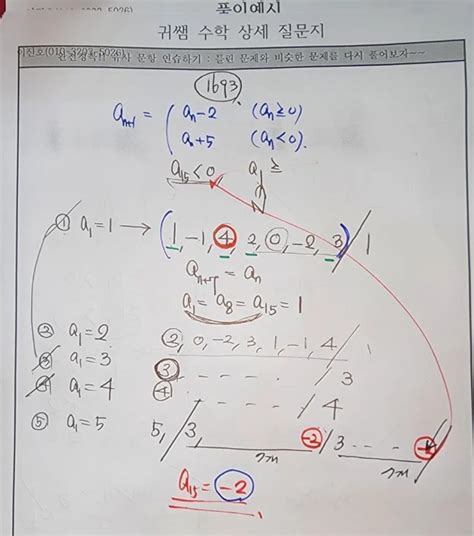 풀이예시
귀쌤 수학 상세 질문지
문항 연습하기 : 틀린 문제와 비슷한 문제를 다시 풀어보자~~
1693
aₙ₊₁ = { aₙ-2 (aₙ≥0)
aₙ+5 (aₙ<0).
a₁₅<0 a₁ ≥
① a₁=1 → (1, -1, 4, 2, 0, -2, 3)/1
aₙ₊₇ = aₙ
a₁ = a₈ = a₁₅ = 1
② a₁=2 2, 0, -2, 3, 1, -1, 4/
③ a₁=3 ③ - - - - /3
④ a₁=4 ④ - - - - /4
⑤ a₁=5 5,/3, -2/3 - - -
a₁₅ = -2